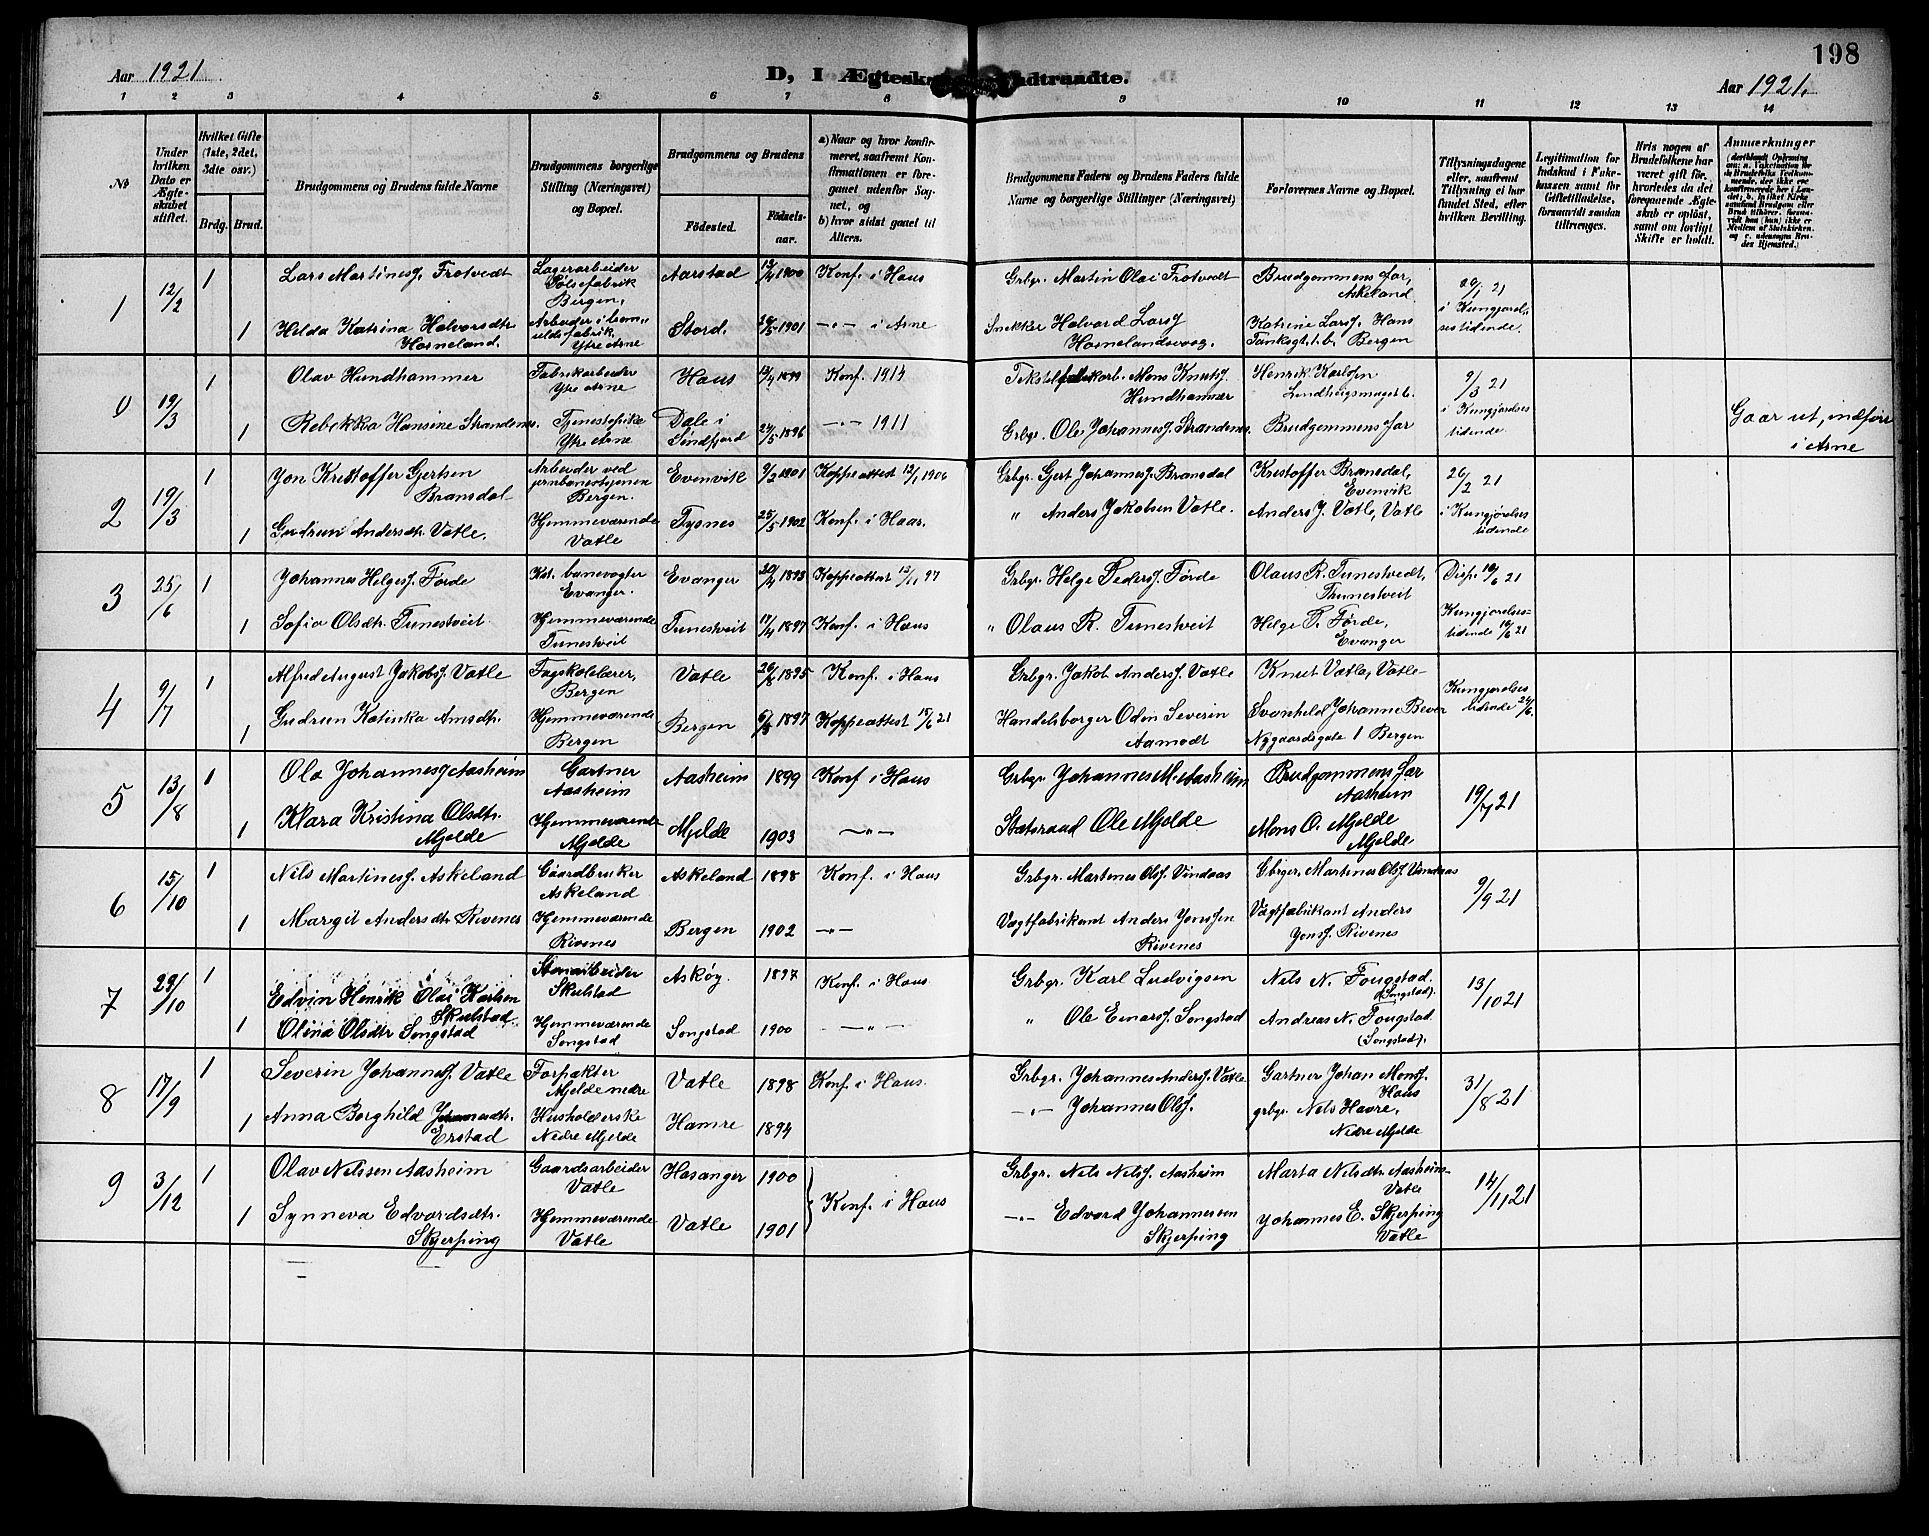 198
Aar 1921
D, I Ægtesk
dtraadte.
Aar 1921.
1 2 3 4 5 6 7 8 9 10 11 12 13 14
No
Under hvilken Dato er Ægteskabet stiftet.
Hvilket Gifte (1ste, 2det, 3die osv.)
Brdg. Brud.
Brudgommens og Brudens fulde Navne
Brudgommens borgerlige Stilling (Næringsvei) og Bopæl.
Brudgommens og Brudens
Fødested. Fødselsaar.
a) Naar og hvor konfirmeret, saafremt Konfirmationen er foregaaet udenfor Sognet, og
b) hvor sidst gaaet til Alters.
Brudgommens Faders og Brudens Faders fulde Navne og borgerlige Stillinger (Næringsvei)
Forlovernes Navne og Bopæl.
Tillysningsdagene eller, saafremt Tillysning ei har fundet Sted, efter hvilken Bevilling.
Legitimation for Indskud i Enkekassen samt for Giftetilladelse, forsaavidt saadan tiltrænges.
Hvis nogen af Brudefolkene har været gift før, hvorledes da det foregaaende Ægteskab er opløst, samt om lovligt Skifte er holdt.
Anmærkninger
1 12/2 1 Lars Martinesj. Frotvedt Lagerarbeider Pølsefabrik Bergen, Aarstad 1900 Konf. i Haus Grbgr. Martin Olai Frotvedt Brudgommens far, Askeland 21
1 Helda Katrina Halvorsdtr. Horneland. Ytre Arne Stord. 1901 —"— i Arne Snekker Halvard Larsj Hornelandsvaag. Katrine Larsj. Haus Bergen i Kungjørelsestidende.
0 19/3 1 Olav Hundhammer Fabrikarbeider Ytre Arne Haus Konf. 1914 Mons Knutsj. Hundhammer Henrik Karlsen 9/3 21
1 Rebekka Hansine Strandenes. Tjenestepike Ytre Arne Dale i Søndfjord 1896 —"— 1911 Grbgr. Ole Johannesj. Strandenes. Brudgommens far i Kungjørelsestidende Gaar ut, indføres i Arne
2 19/3 1 Jon Kristoffer Gertsen Bransdal Arbeider ved jernbanestyenen Bergen. Evenvik 9/2 1901 Koppeattest 12/1 1906 Grbgr. Gjert Johannesj. Bransdal Kristoffer Bransdal, Evenvik 26/2 21
1 Gudrun Andersdtr. Vatle. Hjemmeværende Vatle Tysnes 25/5 1902 Konf. i Haus. " Anders Jakobsen Vatle. Anders J. Vatle, Vatle i Kungjørelsestidende
3 25/6 1 Johannes Helgesj. Førde Kst. banevogter Evanger. Evanger 1893 Koppeattest 97 Grbgr. Helge Pedersj. Førde Olaus R. Tunestvedt, Thunestveit Disp. 10/6 21
1 Sofia Olsdtr. Tunestveit Hjemmeværende Tunestveit Tunestveit 17/4 1897 Konf. i Haus " Olaus R. Tunestveit Helge P. Førde, Evanger Kungjørelsestidende 21
4 9/7 1 Alfred August Jakobsj. Vatle Fagskolelærer, Bergen Vatle 26/8 1895 Konf. i Haus Grbgr. Jakob Andersj. Vatle Knut Vatle, Vatle Kungjørelsestidende
1 Gudrun Katinka Amsdtr. Hjemmeværende Bergen Bergen 1897 Koppeattest 15/6 21 Handelsborger Odin Severin Aamodt Svanhild Johanne Bever Nygaardsgate 1 Bergen
5 13/8 1 Ola Johannesj Aasheim Gartner Aasheim Aasheim 1899 Konf i Haus Grbgr. Johannes M. Aasheim Brudgommens far Aasheim 19/7 21
1 Klara Kristina Olsdtr. Mjelde Hjemmeværende Mjelde Mjelde 1903 —"— Statsraad Ole Mjelde Mons O. Mjelde Mjelde
6 15/10 1 Nils Martinesj. Askeland Gaardbruker Askeland Askeland 1898 Konf. i Haus Grbgr. Martines Olsj. Vindaas Gbrger. Martines Olsj Vindaas 9/9 21
1 Margit Andersdtr. Rivenes Hjemmeværende Rivenes Bergen 1902 —"— Vægtfabrikant Anders Jonssen Rivenes Vægtfabrikant Anders Jonsj. Rivenes
7 29/10 1 Edvin Henrik Olai Karlsen Skulstad Stenarbeider Skulstad Askøy. 1897 Konf. i Haus Grbgr. Karl Ludvigsen Nils N. Fougstad. (Songstad). 13/10 21
1 Olina Olsdtr Songstad Hjemmeværende Songstad Songstad 1900 —"— " Ole Einarsj. Songstad Andreas N. Fougstad (Songstad).
8 17/9 1 Severin Johannesj. Vatle Forpakter Mjelde nedre Vatle 1898 Konf. i Haus. Grbgr. Johannes Andersj. Vatle Gartner Johan Monsj. Haus 31/8 21
1 Anna Borghild Johannesdtr. Erstad Husholderske Nedre Mjelde Hamre 1894 —"— Johannes Olsj. grbgr. Nils Havre, Nedre Mjelde
9 3/12 1 Olav Nilssen Aasheim Gaardsarbeider Vatle Hosanger 1900 Konf. i Haus Grbgr. Nils Nilsj. Aasheim Marta Nilsdtr. Aasheim Vatle 14/11 21
1 Synneva Edvardsdtr. Skjerping Hjemmeværende Vatle Vatle 1901 —"— Edvard Johannessen Skjerping Johannes E. Skjerping Vatle